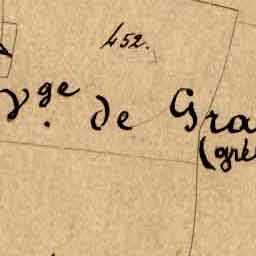 452.
Vge. de Gra
(gré